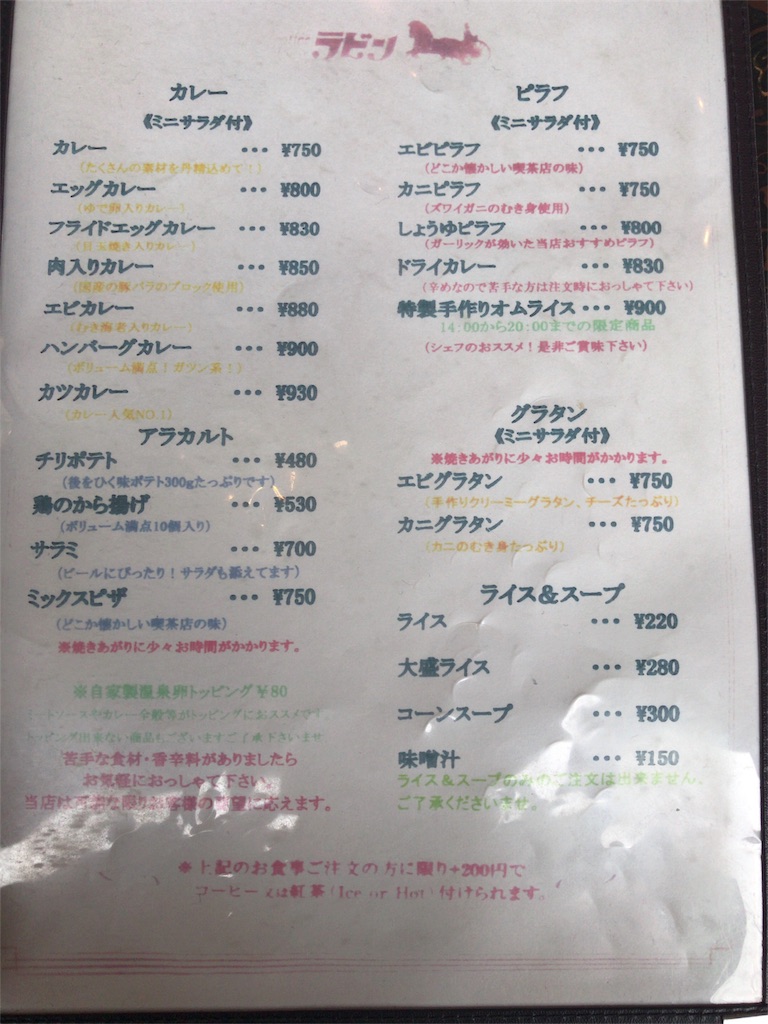 ラビン
カレー
《ミニサラダ付》
カレー ・・・ ¥750
(たくさんの素材を丹精込めて！)
エッグカレー ・・・ ¥800
(ゆで卵入りカレー)
フライドエッグカレー ・・・ ¥830
(目玉焼き入りカレー)
肉入りカレー ・・・ ¥850
(国産の豚バラのブロック使用)
エビカレー ・・・ ¥880
(むき海老入りカレー)
ハンバーグカレー ・・・ ¥900
(ボリューム満点！ガツン系！)
カツカレー ・・・ ¥930
(カレー人気NO.1)
アラカルト
チリポテト ・・・ ¥480
(後をひく味ポテト300gたっぷりです)
鶏のから揚げ ・・・ ¥530
(ボリューム満点10個入り)
サラミ ・・・ ¥700
(ビールにぴったり！サラダも添えてます)
ミックスピザ ・・・ ¥750
(どこか懐かしい喫茶店の味)
※焼きあがりに少々お時間がかかります。
※自家製温泉卵トッピング￥80
ミートソースやカレー全般等がトッピングにおススメです。
トッピング出来ない商品もございますご了承下さいませ
苦手な食材・香辛料がありましたら
お気軽におっしゃて下さい。
当店は可能な限りお客様の要望に応えます。
ピラフ
《ミニサラダ付》
エビピラフ ・・・ ¥750
(どこか懐かしい喫茶店の味)
カニピラフ ・・・ ¥750
(ズワイガニのむき身使用)
しょうゆピラフ ・・・ ¥800
(ガーリックが効いた当店おすすめピラフ)
ドライカレー ・・・ ¥830
(辛めなので苦手な方は注文時におっしゃて下さい)
特製手作りオムライス・・・ ¥900
14:00から20:00までの限定商品
(シェフのおススメ！是非ご賞味下さい)
グラタン
《ミニサラダ付》
※焼きあがりに少々お時間がかかります。
エビグラタン ・・・ ¥750
(手作りクリーミーグラタン、チーズたっぷり)
カニグラタン ・・・ ¥750
(カニのむき身たっぷり)
ライス＆スープ
ライス ・・・ ¥220
大盛ライス ・・・ ¥280
コーンスープ ・・・ ¥300
味噌汁 ・・・ ¥150
ライス＆スープのみのご注文は出来ません。
ご了承くださいませ。
※上記のお食事ご注文の方に限り+200円で
コーヒー又は紅茶(Ice or Hot)付けられます。